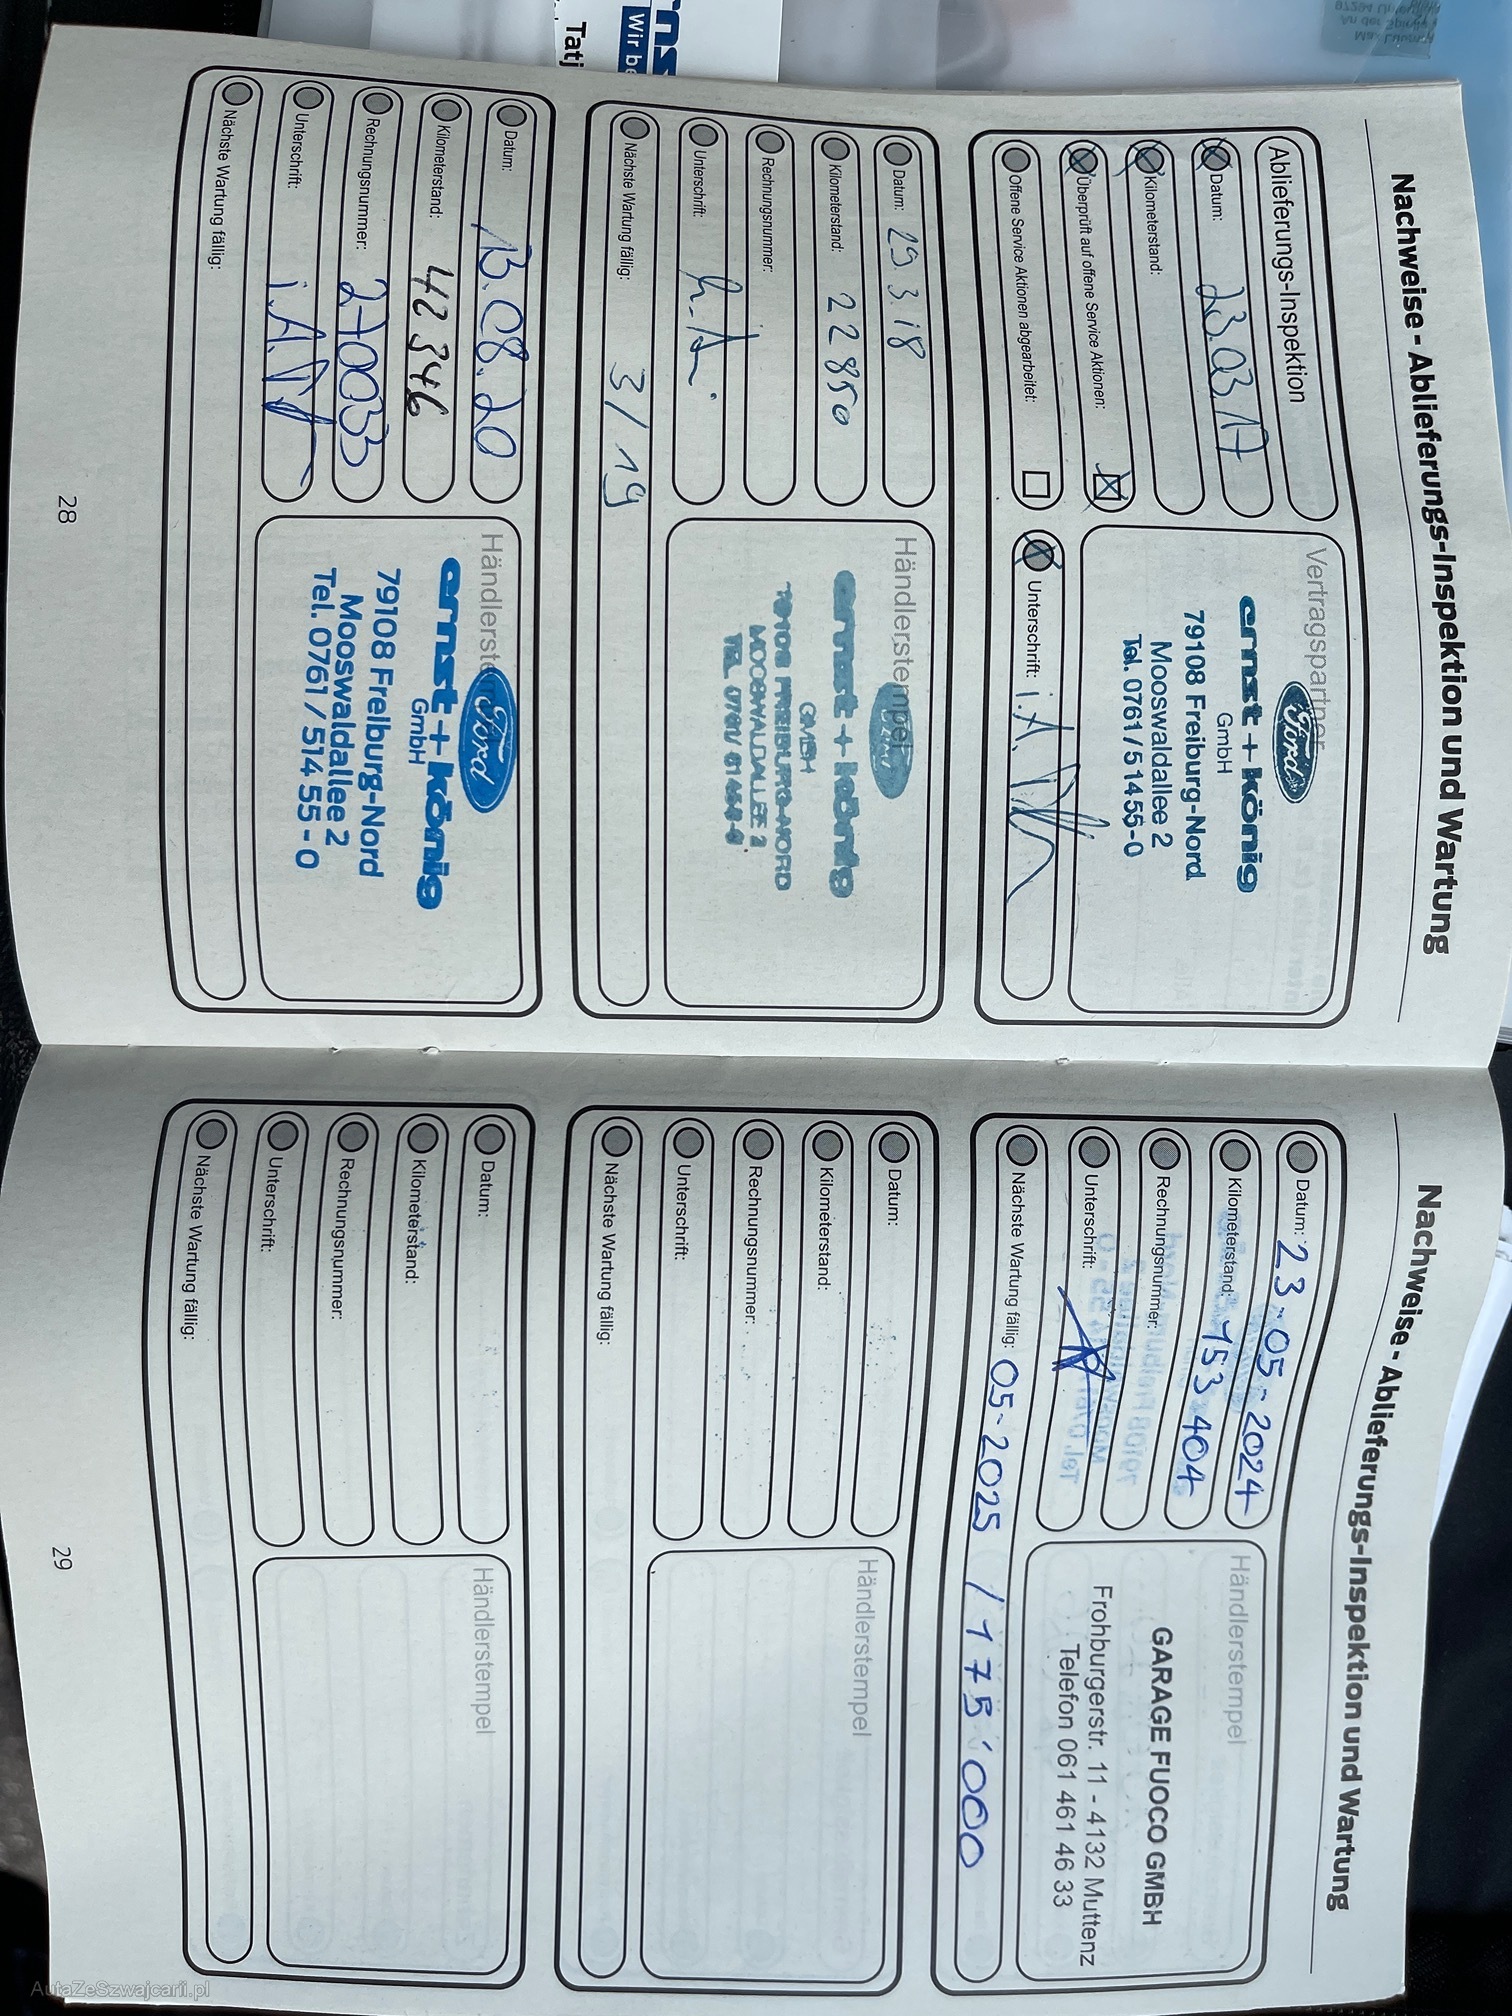 Nachweise - Ablieferungs-Inspektion und Wartung
Ablieferungs-Inspektion
Datum: 23.03.17
Kilometerstand:
Überprüft auf offene Service Aktionen:
Offene Service Aktionen abgearbeitet:
Vertragspartner
Ford
ernst + könig
GmbH
79108 Freiburg-Nord
Mooswaldallee 2
Tel. 0761 / 5 14 55-0
Unterschrift: i.A.
Datum: 29.3.18
Kilometerstand: 22850
Rechnungsnummer:
Unterschrift: i.A.
Nächste Wartung fällig: 3/19
Händlerstempel
Ford
ernst + könig
GMBH
79108 FREIBURG-NORD
MOOSWALDALLEE 2
TEL. 0761/
Datum: 13.08.20
Kilometerstand: 42346
Rechnungsnummer: 270033
Unterschrift: i.A.
Nächste Wartung fällig:
Händlerstempel
Ford
ernst + könig
GmbH
79108 Freiburg-Nord
Mooswaldallee 2
Tel. 0761 / 5 14 55 - 0
28
Nachweise - Ablieferungs-Inspektion und Wartung
Datum: 23-05-2024
Kilometerstand: 153'404
Rechnungsnummer:
Unterschrift:
Nächste Wartung fällig: 05-2025 / 175'000
Händlerstempel
GARAGE FUOCO GMBH
Frohburgerstr. 11 - 4132 Muttenz
Telefon 061 461 46 33
Datum:
Kilometerstand:
Rechnungsnummer:
Unterschrift:
Nächste Wartung fällig:
Händlerstempel
Datum:
Kilometerstand:
Rechnungsnummer:
Unterschrift:
Nächste Wartung fällig:
Händlerstempel
29
Wir be
Tatj
AutaZeSzwajcarii.pl